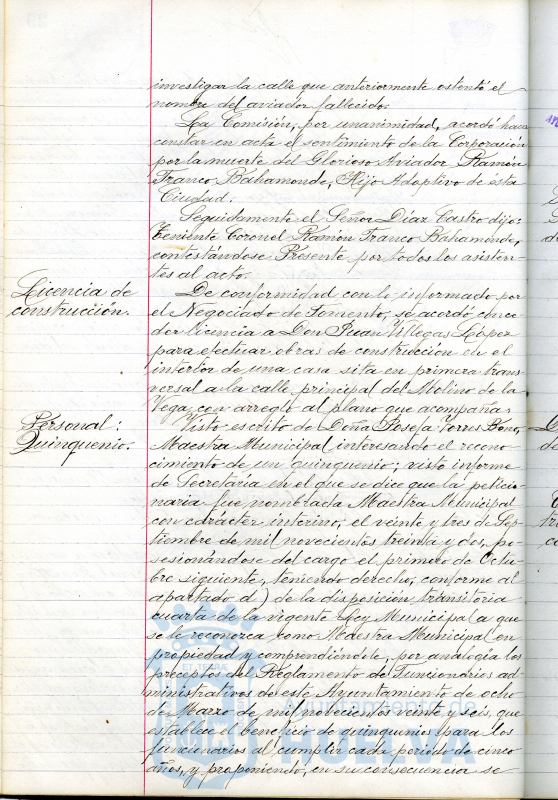 investigar la calle que anteriormente ostentó el
nombre del aviador fallecido.
La Comisión, por unanimidad, acordó hacer
constar en acta el sentimiento de la Corporación
por la muerte del Glorioso Aviador Ramón
Franco Bahamonde, Hijo Adoptivo de ésta
Ciudad.
Seguidamente el Señor Díaz Castro dijo:
Teniente Coronel Ramón Franco Bahamonde,
contestándose Presente por todos los asisten-
tes al acto.
Licencia de
construcción.
De conformidad con lo informado por
el Negociado de Fomento, se acordó conce-
der licencia a Don Juan Villegas López
para efectuar obras de construcción en el
interior de una casa sita en primera trans-
versal a la calle principal del Molino de la
Vega, con arreglo al plano que acompaña.
Personal:
Quinquenio.
Visto escrito de Doña Josefa Torres Bono,
Maestra Municipal interesando el recono-
cimiento de un quinquenio; visto informe
de Secretaría en el que se dice que la peticio-
naria fue nombrada Maestra Municipal
con carácter interino, el veinte y tres de Sep-
tiembre de mil novecientos treinta y dos, po-
sesionándose del cargo el primero de Octu-
bre siguiente, teniendo derecho, conforme al
apartado d) de la disposición transitoria
cuarta de la vigente Ley Municipal a que
se le reconozca como Maestra Municipal en
propiedad y comprendiéndole, por analogía los
preceptos del Reglamento de Funcionarios ad-
ministrativos de este Ayuntamiento de ocho
de Marzo de mil novecientos veinte y seis, que
establece el beneficio de quinquenios para los
funcionarios al cumplir cada período de cinco
años, y proponiendo, en su consecuencia se-
Ayuntamiento de
HUELVA